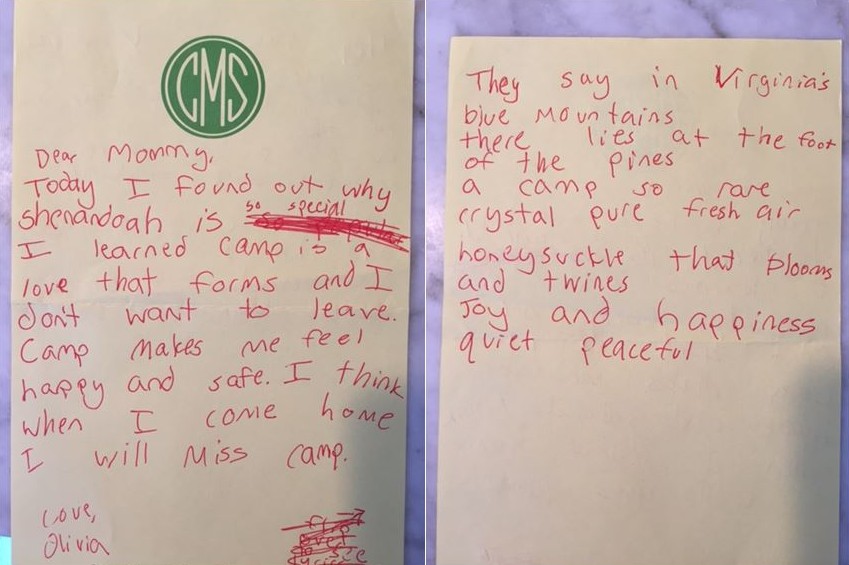 CMS
Dear Mommy,
Today I found out why
shenandoah is so special
I learned camp is a
love that forms and I
don't want to leave.
Camp makes me feel
happy and safe. I think
when I come home
I will Miss camp.
Love,
Olivia
They say in Virginia's
blue Mountains
there lies at the foot
of the pines
a camp so rare
crystal pure fresh air
honeysuckle that blooms
and twines
Joy and happiness
quiet peaceful